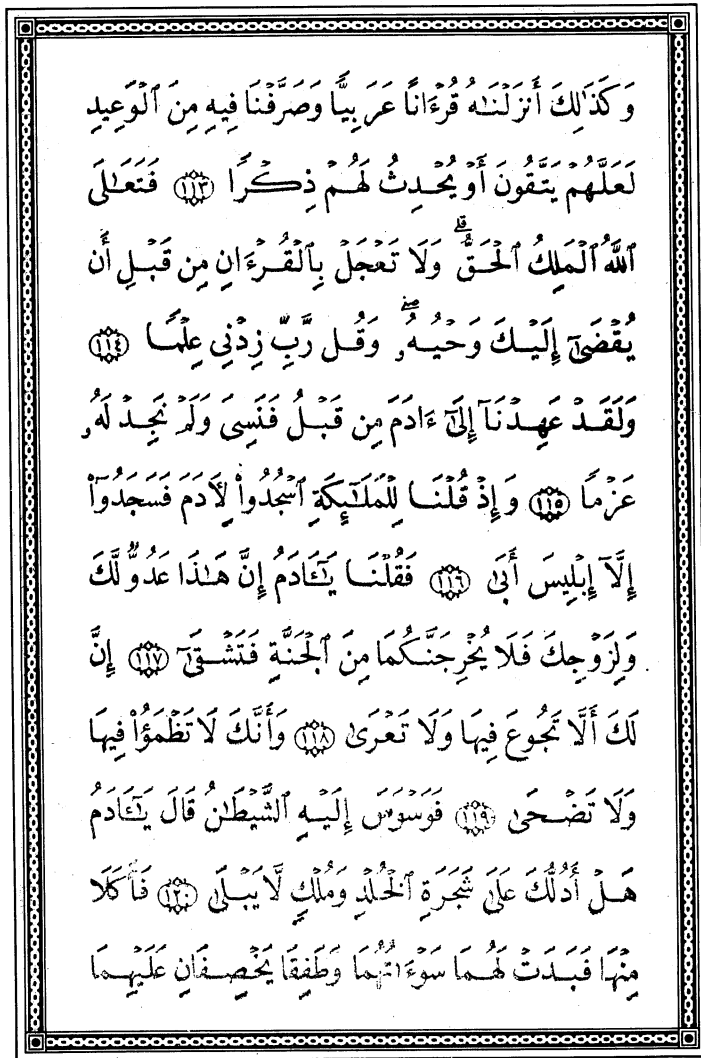 وَكَذَٰلِكَ أَنزَلْنَٰهُ قُرْءَانًا عَرَبِيًّا وَصَرَّفْنَا فِيهِ مِنَ ٱلْوَعِيدِ
لَعَلَّهُمْ يَتَّقُونَ أَوْ يُحْدِثُ لَهُمْ ذِكْرًا ١١٣ فَتَعَٰلَى
ٱللَّهُ ٱلْمَلِكُ ٱلْحَقُّ ۗ وَلَا تَعْجَلْ بِٱلْقُرْءَانِ مِن قَبْلِ أَن
يُقْضَىٰٓ إِلَيْكَ وَحْيُهُۥ ۖ وَقُل رَّبِّ زِدْنِى عِلْمًا ١١٤
وَلَقَدْ عَهِدْنَآ إِلَىٰٓ ءَادَمَ مِن قَبْلُ فَنَسِىَ وَلَمْ نَجِدْ لَهُۥ
عَزْمًا ١١٥ وَإِذْ قُلْنَا لِلْمَلَٰٓئِكَةِ ٱسْجُدُوا۟ لِءَادَمَ فَسَجَدُوٓا۟
إِلَّآ إِبْلِيسَ أَبَىٰ ١١٦ فَقُلْنَا يَٰٓـَٔادَمُ إِنَّ هَٰذَا عَدُوٌّ لَّكَ
وَلِزَوْجِكَ فَلَا يُخْرِجَنَّكُمَا مِنَ ٱلْجَنَّةِ فَتَشْقَىٰٓ ١١٧ إِنَّ
لَكَ أَلَّا تَجُوعَ فِيهَا وَلَا تَعْرَىٰ ١١٨ وَأَنَّكَ لَا تَظْمَؤُا۟ فِيهَا
وَلَا تَضْحَىٰ ١١٩ فَوَسْوَسَ إِلَيْهِ ٱلشَّيْطَٰنُ قَالَ يَٰٓـَٔادَمُ
هَلْ أَدُلُّكَ عَلَىٰ شَجَرَةِ ٱلْخُلْدِ وَمُلْكٍ لَّا يَبْلَىٰ ١٢٠ فَأَكَلَا
مِنْهَا فَبَدَتْ لَهُمَا سَوْءَٰتُهُمَا وَطَفِقَا يَخْصِفَانِ عَلَيْهِمَا